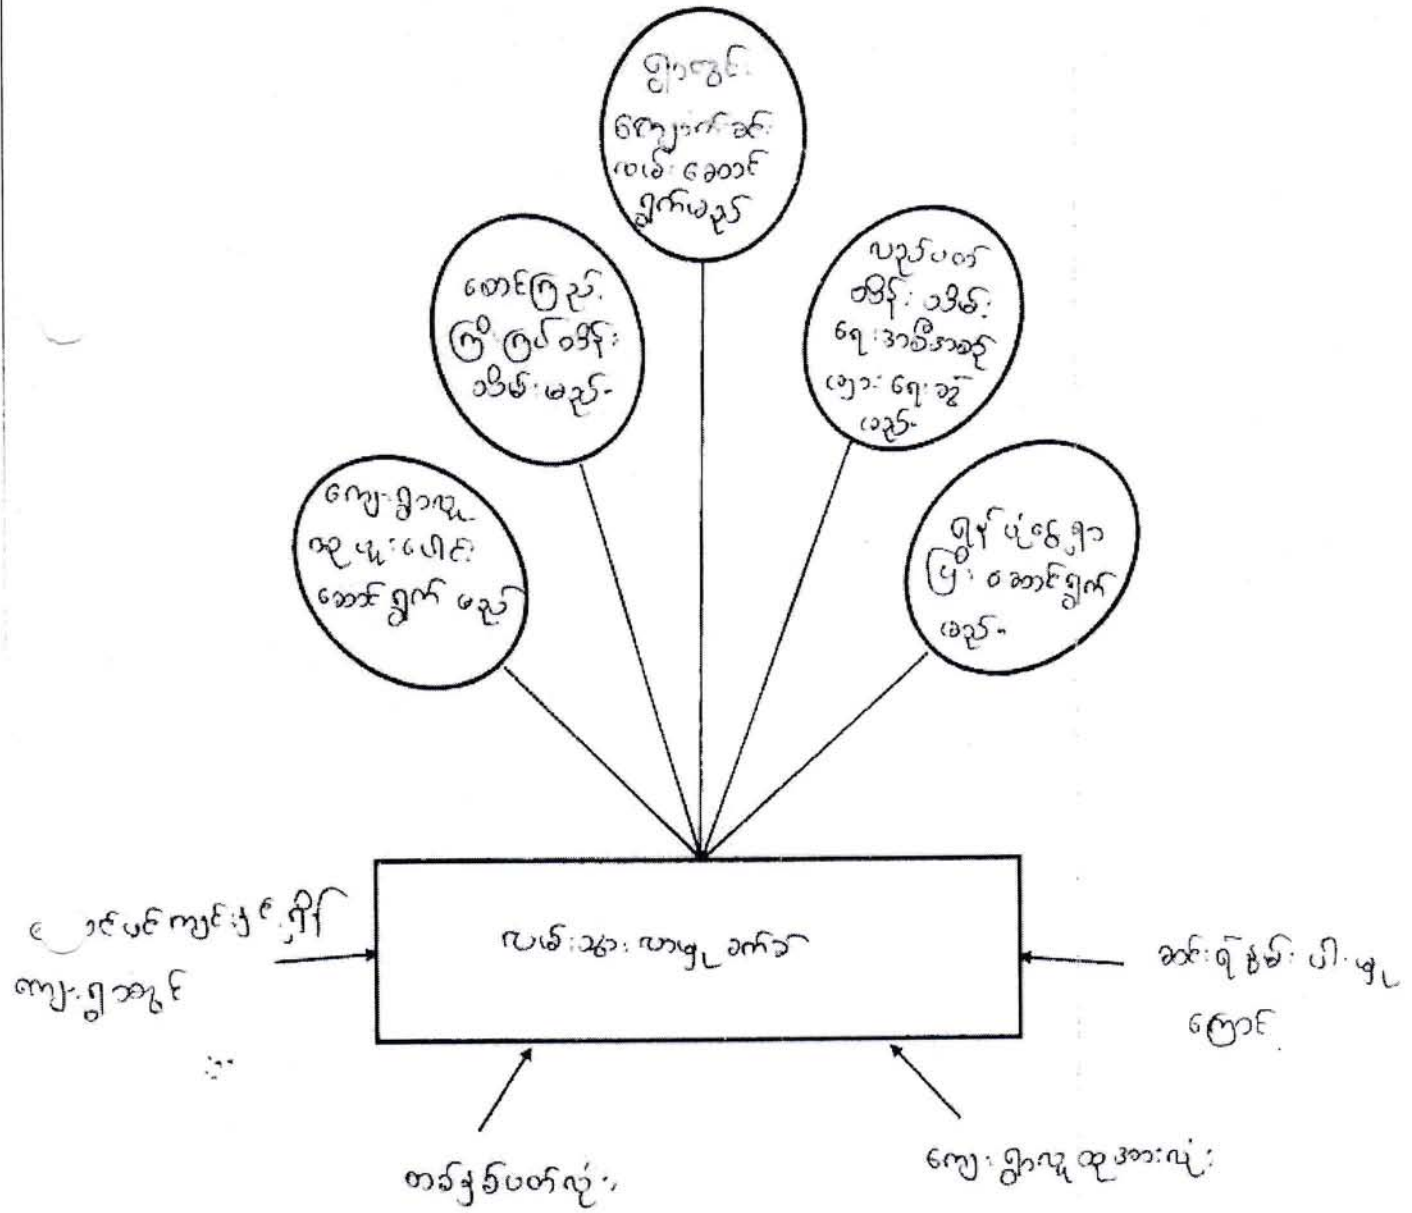 ရွာတွင်း
ကျောက်ခင်း
လမ်းဆောင်
ရွက်မည်
စောင့်ကြည့်
ကြီးကြပ်ထိန်း
သိမ်းမည်။
လည်ပတ်
ထိန်းသိမ်း
ရေးအစီအစဉ်
များရေးဆွဲ
မည်။
ကျေးရွာလူ
ထုပူးပေါင်း
ဆောင်ရွက်မည်
ရန်ပုံငွေရှာ
ပြီးဆောင်ရွက်
မည်။
ကျင်းနှင့်ရှိန်
ကျေးရွာတွင်
လမ်းသွားလာမှုခက်ခဲ
ဆင်းရဲနွမ်းပါးမှု
ကြောင့်
တစ်နှစ်ပတ်လုံး
ကျေးရွာလူထုအားလုံး